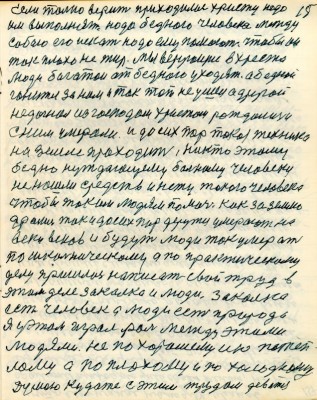 15
Если только верит приходим к христу надо
им выполнять надо бедного человека между
собою его искат надо ему помогат чтобы он
так плохо не жир. Мы верующие в христа
люди богатои от бедного уходят. а бедной
гонится за ним а так тот не ушел а другой
недогнал и с господом христом рождались и
с ним умерали. и до сих пор такая техника
на земле проходит, никто этому
бедно нуждающему больному человеку
не нашли средств и нету такого человека
чтобы таким людям помоч. как за землю
драли, так и до сих пор дерутся умерают на
веки веков и будут люди так умерат
по и по практическому
делу пришлось написат свой труд в
этом деле закалка и люди. Закалка
ест человек а люди ест природа
Я у этом играл рол между этими
людями. не по хорошему и по
теплому а по плохому и по холодному
Думаю куда те с этим трудом девать